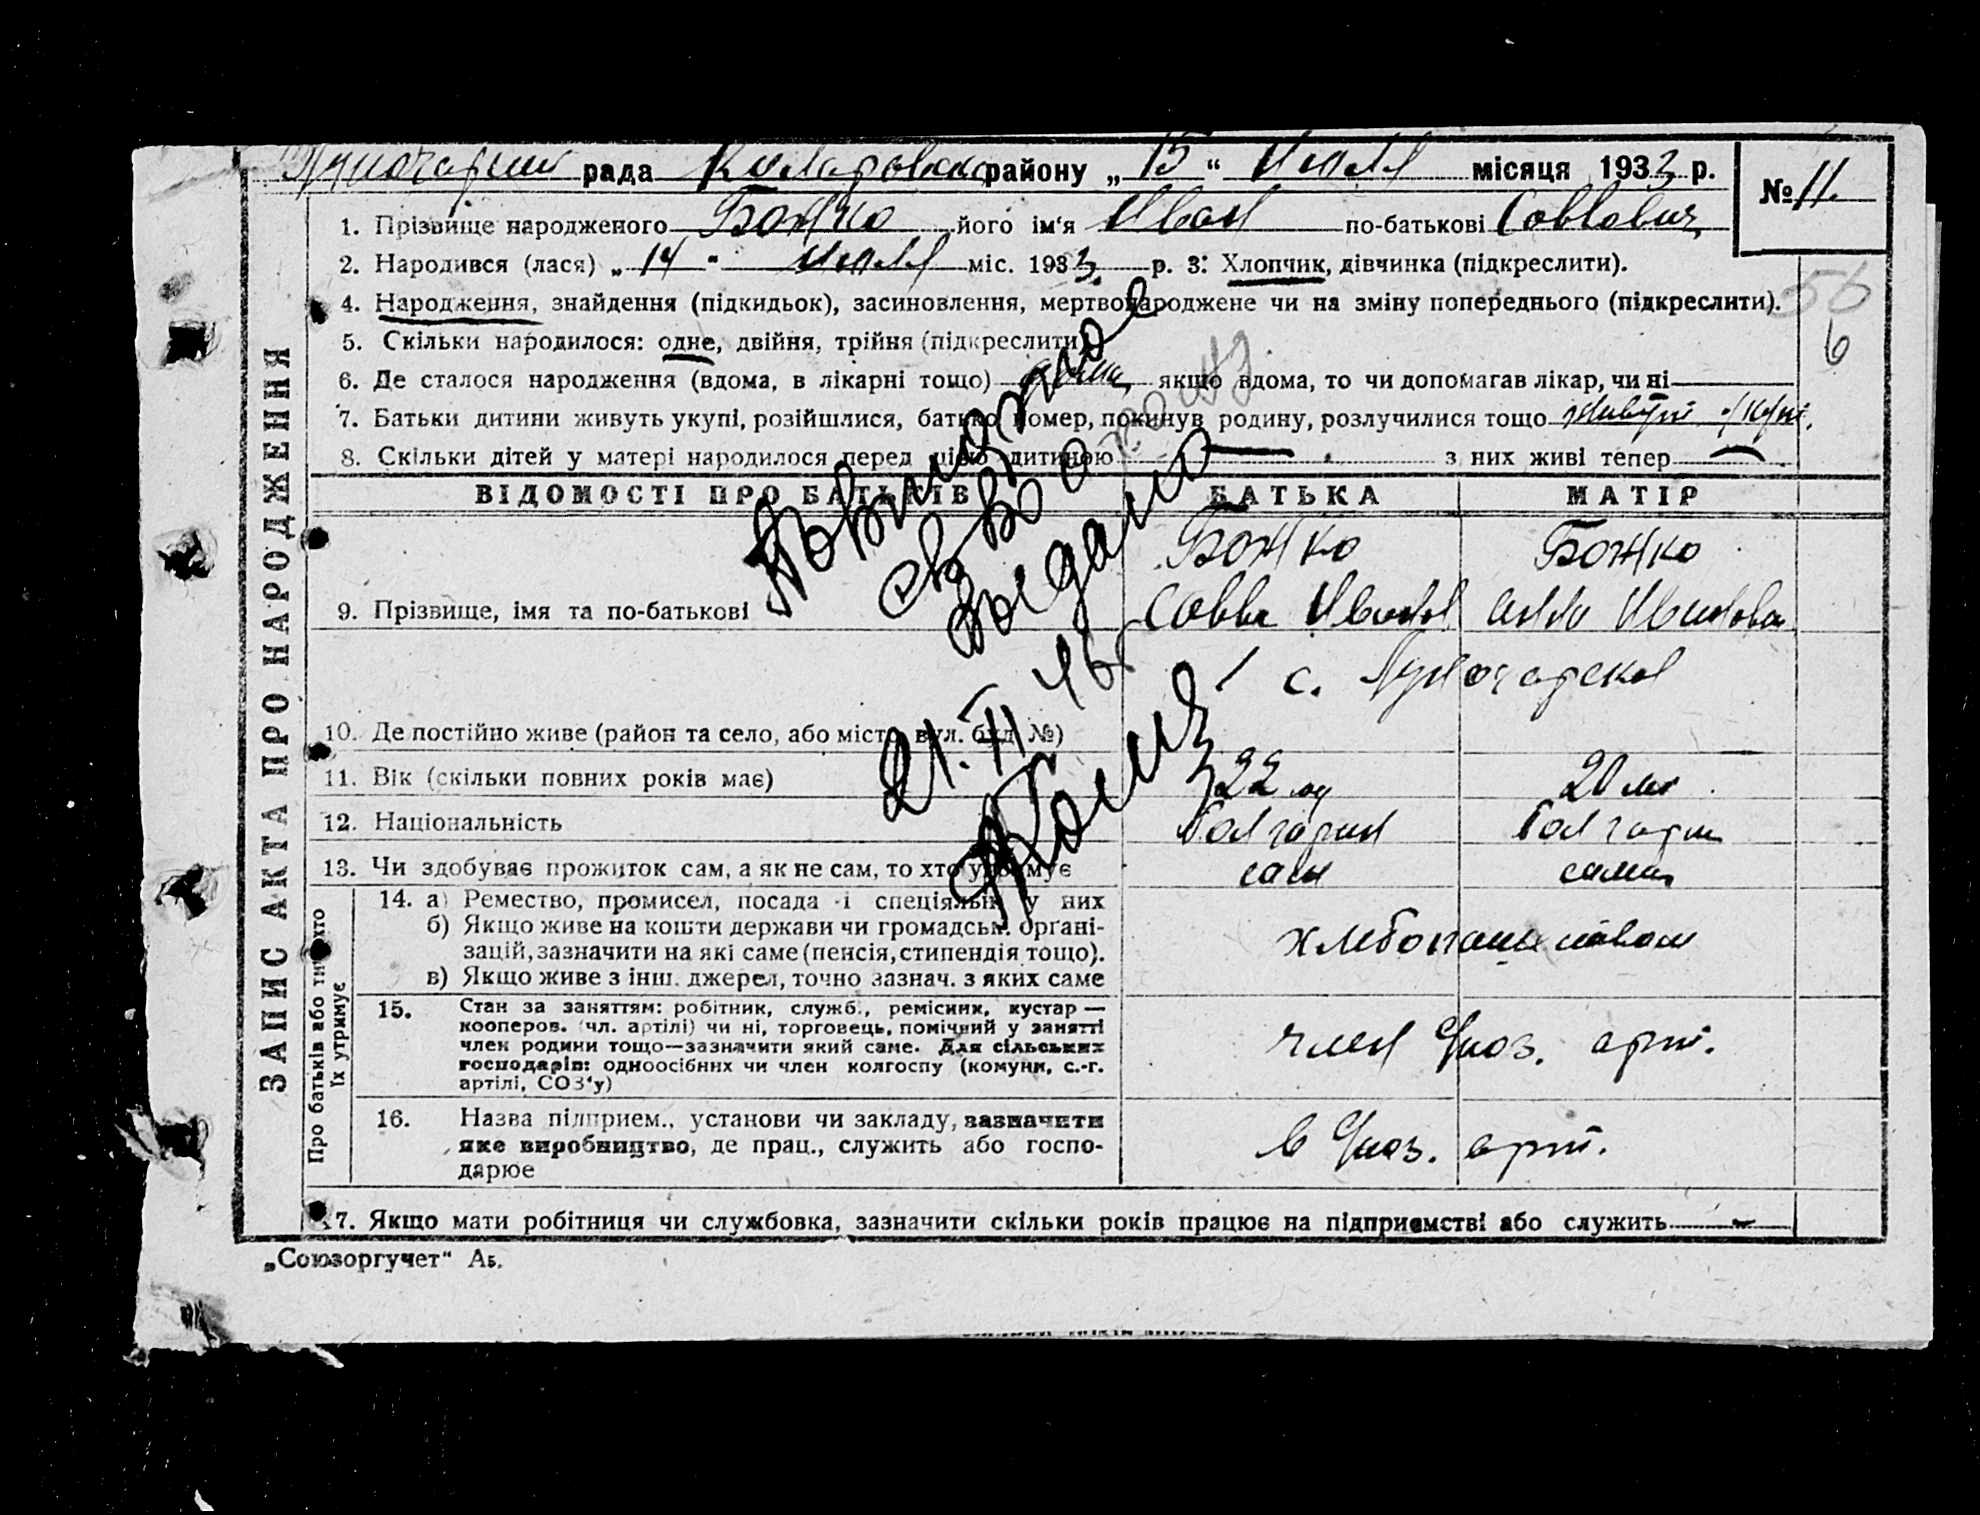 рада Коларовськ району „15“ Июля місяця 1933 р. № 11.
1. Прізвище народженого Божко його ім'я Иван по-батькові Саввович
2. Народився (лася) „14" Июля міс. 1933 р. 3: Хлопчик, дівчинка (підкреслити).
4. Народження, знайдення (підкидьок), засиновлення, мертвонароджене чи на зміну попереднього (підкреслити).
56
5. Скільки народилося: одне, двійня, трійня (підкреслити)
6
6. Де сталося народження (вдома, в лікарні тощо) якщо вдома, то чи допомагав лікар, чи ні
7. Батьки дитини живуть укупі, розійшлися, батько помер, покинув родину, розлучилися тощо живуть укупі.
8. Скільки дітей у матері народилося перед цією дитиною — з них живі тепер —
ЗАПИС АКТА ПРО НАРОДЖЕННЯ
ВІДОМОСТІ ПРО БАТЬКІВ БАТЬКА МАТІР
Божко Божко
9. Прізвище, імя та по-батькові Савва Иванов Анна Иванова
с. Луночарск
10. Де постійно живе (район та село, або місто, вул. буд. №)
11. Вік (скільки повних років має) 22 20 лет
12. Національність болгарин болгарк
13. Чи здобуває прожиток сам, а як не сам, то хто утримує сам сама
Про батьків або тих хто їх утримує
14. а) Ремество, промисел, посада і спеціяльн. у них
б) Якщо живе на кошти держави чи громадськ. органі-
зацій, зазначити на які саме (пенсія, стипендія тощо).
в) Якщо живе з інш. джерел, точно зазнач. з яких саме
хлебопашеством
15. Стан за заняттям: робітник, служб., ремісник, кустар —
кооперов. (чл. артілі) чи ні, торговець, помічний у занятті
член родини тощо—зазначити який саме. Для сільських
господарів: одноосібних чи член колгоспу (комуни, с.-г.
артілі, СОЗ'у)
член арт.
16. Назва підприєм., установи чи закладу, зазначити
яке виробництво, де прац., служить або госпо-
дарює
в арт.
17. Якщо мати робітниця чи службовка, зазначити скільки років працює на підприємстві або служить —
„Союзоргучет" А5.
Повторное
св-во о
выдано
21. II 46 г